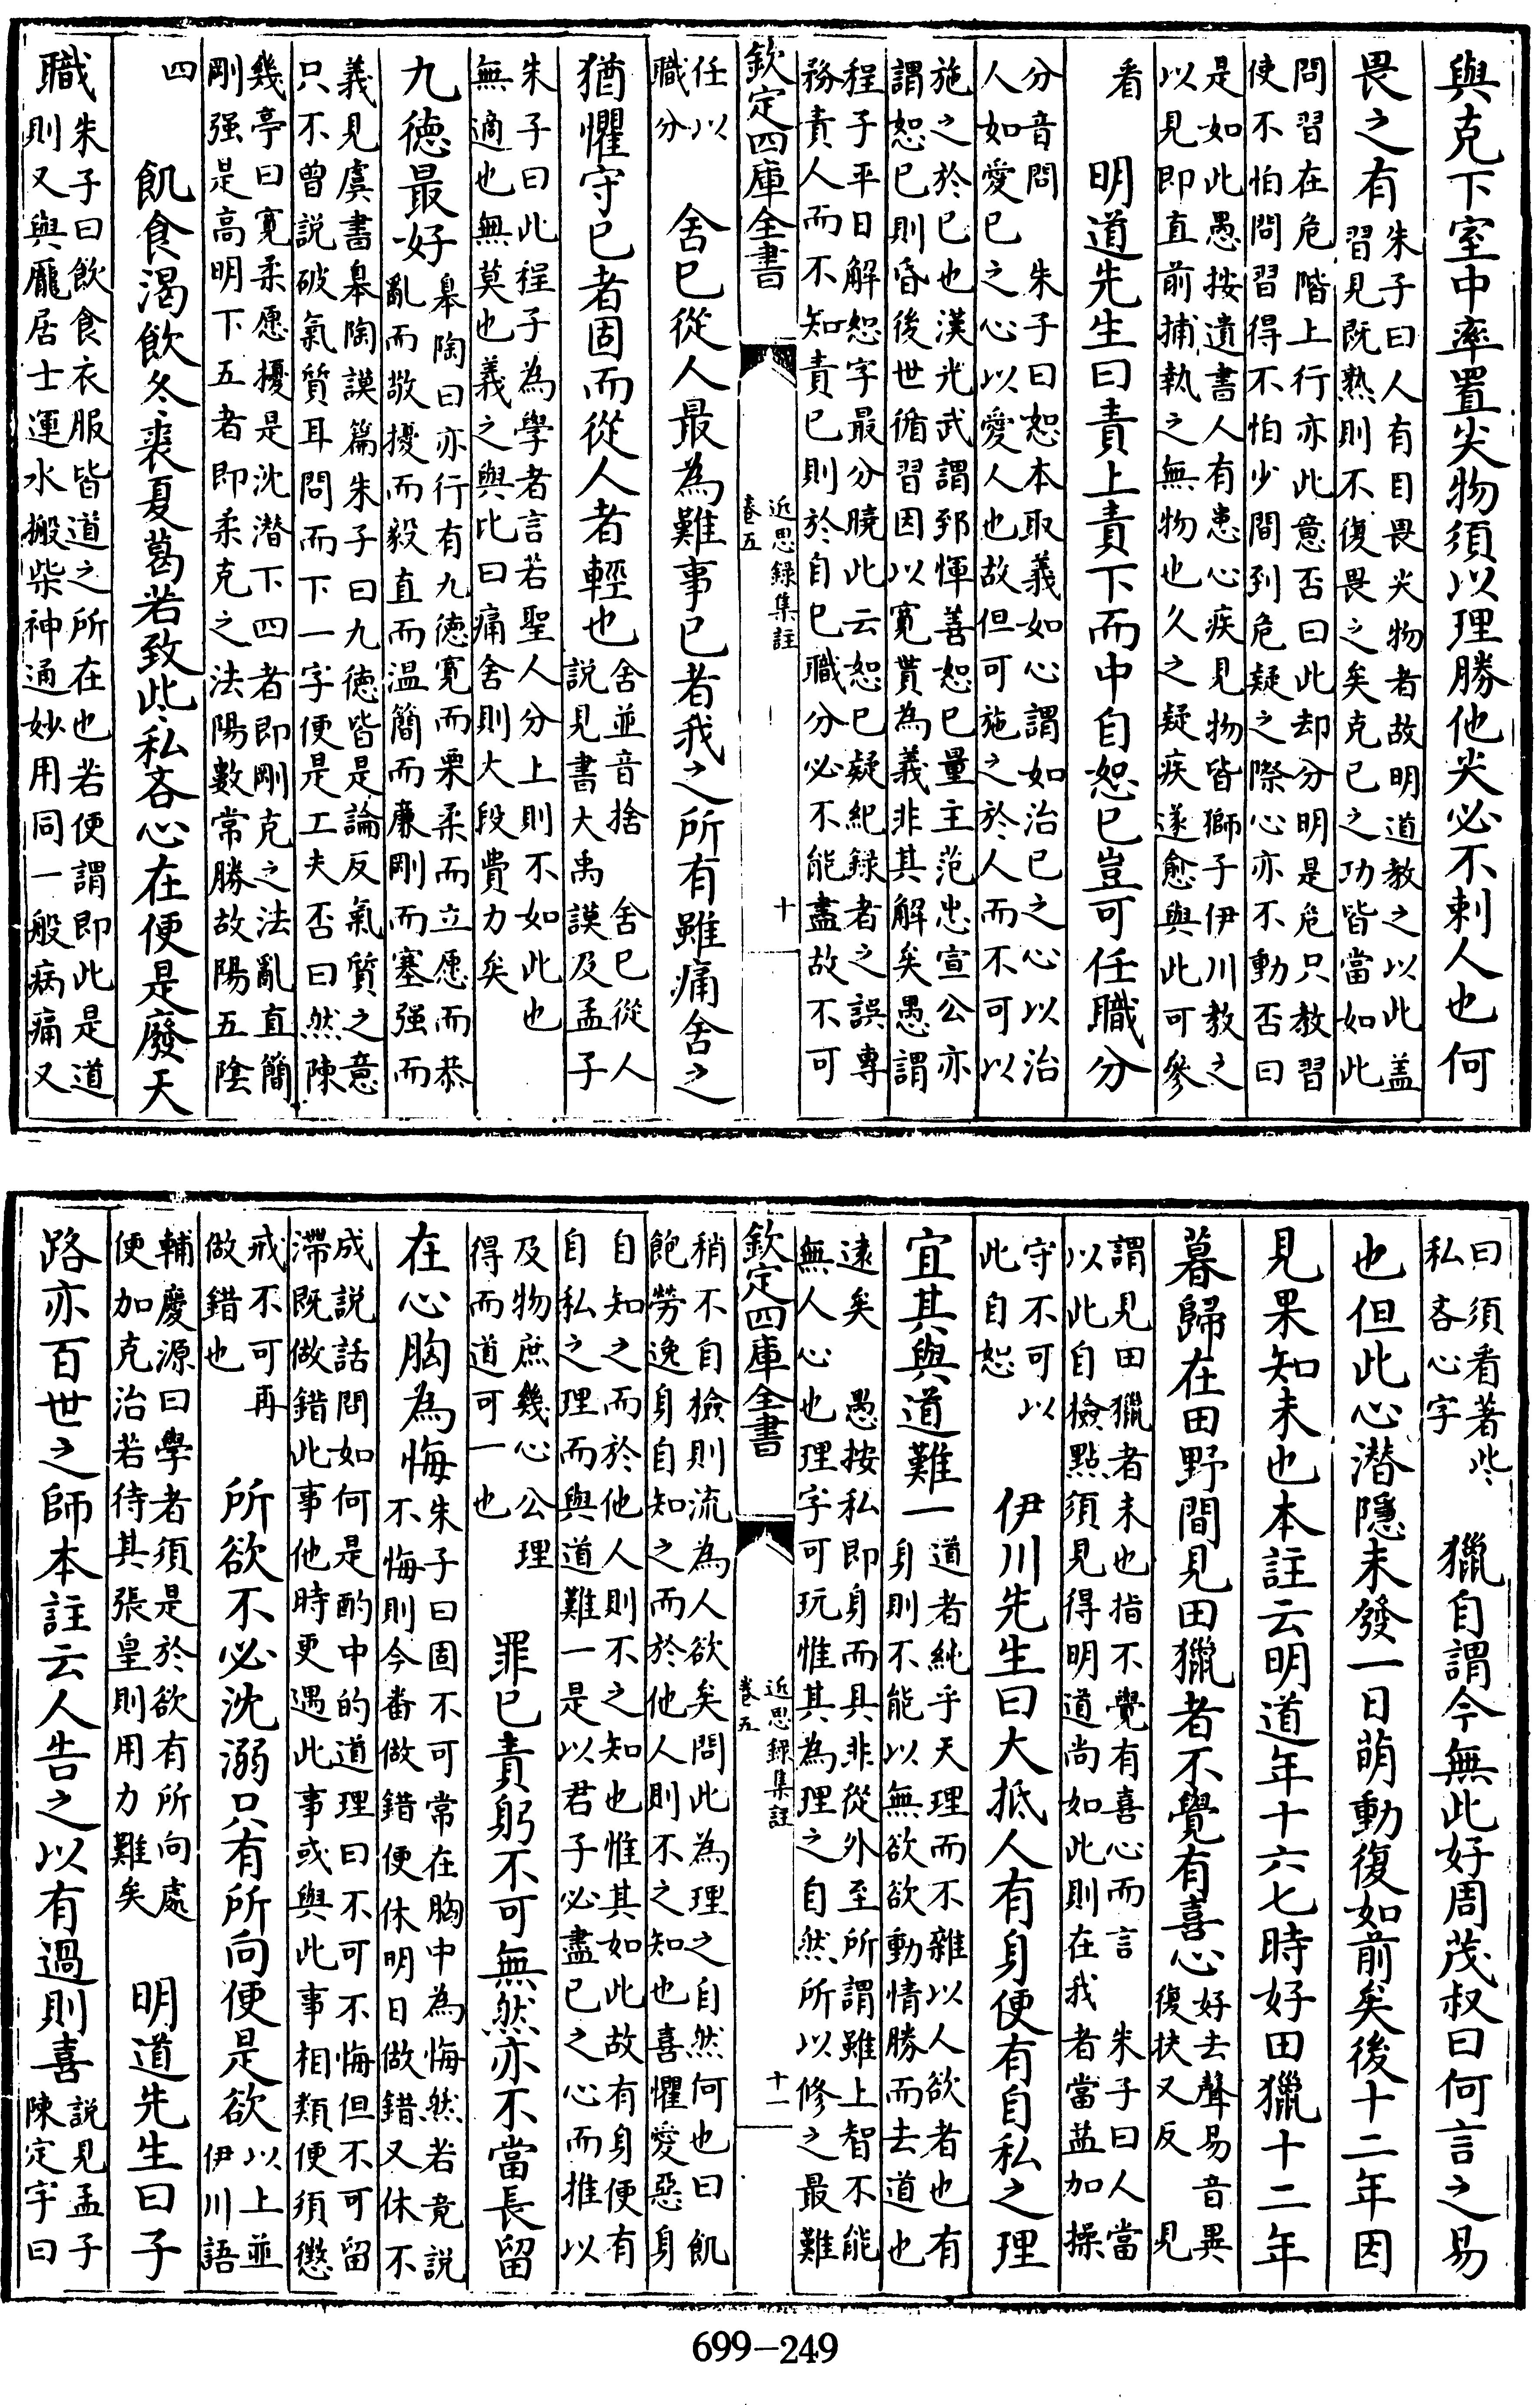 與克下室中率置尖物須以理勝他尖必不刺人也何
畏之有
朱子曰人有目畏尖物者故明道教之以此盖
習見既熟則不復畏之矣克已之功皆當如此
問習在危階上行亦此意否曰此却分明是危只教習
使不怕問習得不怕少間到危疑之際心亦不動否曰
是如此愚按遺書人有患心疾見物皆獅子伊川教之
以見即直前捕執之無物也久之疑疾遂愈與此可參
看
明道先生曰責上責下而中自恕已豈可任職分
分音問 朱子曰恕本取義如心謂如治已之心以治
人如愛已之心以愛人也故但可施之於人而不可以
施之於已也漢光武謂郅惲善恕已量主范忠宣公亦
謂恕已則昏後世循習因以寛貰為義非其解矣愚謂
程子平日解恕字最分曉此云恕已疑紀録者之誤專
務責人而不知責已則於自已職分必不能盡故不可
欽定四庫全書
近思録集註
卷五
十
任以
職分
舍已從人最為難事已者我之所有雖痛舍之
猶懼守已者固而從人者輕也
舍並音捨 舍已從人
説見書大禹謨及孟子
朱子曰此程子為學者言若聖人分上則不如此也
無適也無莫也義之與比曰痛舍則大段費力矣
九徳最好
臯陶曰亦行有九徳寛而栗柔而立愿而恭
亂而敬擾而毅直而温簡而廉剛而塞强而
義見虞書臯陶謨篇朱子曰九徳皆是論反氣質之意
只不曽説破氣質耳問而下一字便是工夫否曰然陳
幾亭曰寛柔愿擾是沈潜下四者即剛克之法亂直簡
剛强是高明下五者即柔克之法陽數常勝故陽五陰
四
飢食渴飲冬裘夏葛若致此私吝心在便是廢天
職
朱子曰飲食衣服皆道之所在也若便謂即此是道
則又與龎居士運水搬柴神通妙用同一般病痛又
曰須看著些
私吝心字
獵自謂今無此好周茂叔曰何言之易
也但此心潜隱未發一日萌動復如前矣後十二年因
見果知未也本註云明道年十六七時好田獵十二年
暮歸在田野間見田獵者不覺有喜心
好去聲易音異
復扶又反 見
謂見田獵者未也指不覺有喜心而言 朱子曰人當
以此自檢點須見得明道尚如此則在我者當益加操
守不可以
此自恕
伊川先生曰大抵人有身便有自私之理
宜其與道難一
道者純乎天理而不雜以人欲者也有
身則不能以無欲欲動情勝而去道也
遠矣 愚按私即身而具非從外至所謂雖上智不能
無人心也理字可玩惟其為理之自然所以修之最難
欽定四庫全書
近思録集註
卷五
十一
稍不自檢則流為人欲矣問此為理之自然何也曰飢
飽勞逸身自知之而於他人則不之知也喜懼愛惡身
自知之而於他人則不之知也惟其如此故有身便有
自私之理而與道難一是以君子必盡已之心而推以
及物庶幾心公理
得而道可一也
罪已責躬不可無然亦不當長留
在心胸為悔
朱子曰固不可常在胸中為悔然若竟説
不悔則今番做錯便休明日做錯又休不
成説話問如何是酌中的道理曰不可不悔但不可留
滯既做錯此事他時更遇此事或與此事相類便須懲
戒不可再
做錯也
所欲不必沈溺只有所向便是欲
以上並
伊川語
輔慶源曰學者須是於欲有所向處
便加克治若待其張皇則用力難矣
明道先生曰子
路亦百世之師本註云人告之以有過則喜
説見孟子
陳定宇曰
699-249